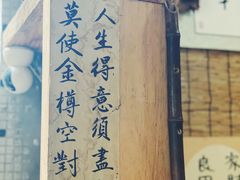 人生得意須盡
莫使金樽空對